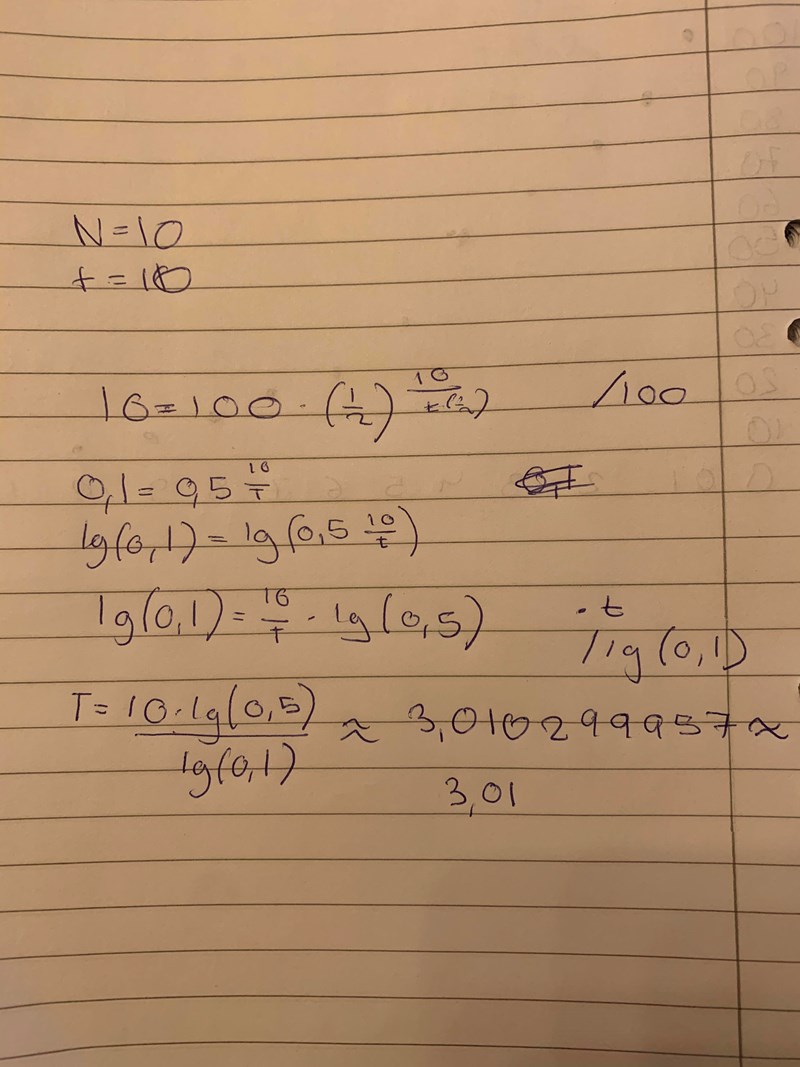 N=10
t=10
10=100·(1/2)^(10/t(1/2)) /100
0,1=0,5^(10/T)
lg(0,1)=lg(0,5^(10/t))
lg(0,1)=10/T·lg(0,5) ·t
/lg(0,1)
T=10·lg(0,5)/lg(0,1)≈3,010299957≈
3,01